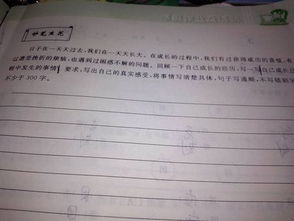 妙笔生花
日子在一天天过去,我们在一天天长大。在成长的过程中,我们有过获得成功的喜悦,有
过遭受挫折的烦恼,也遇到过困惑不解的问题。回顾一下自己成长的经历,写一写自己成长过
程中发生的事情。要求,写出自己的真实感受,将事情写清楚具体,句子写通顺,不写错别字
不少于300字。